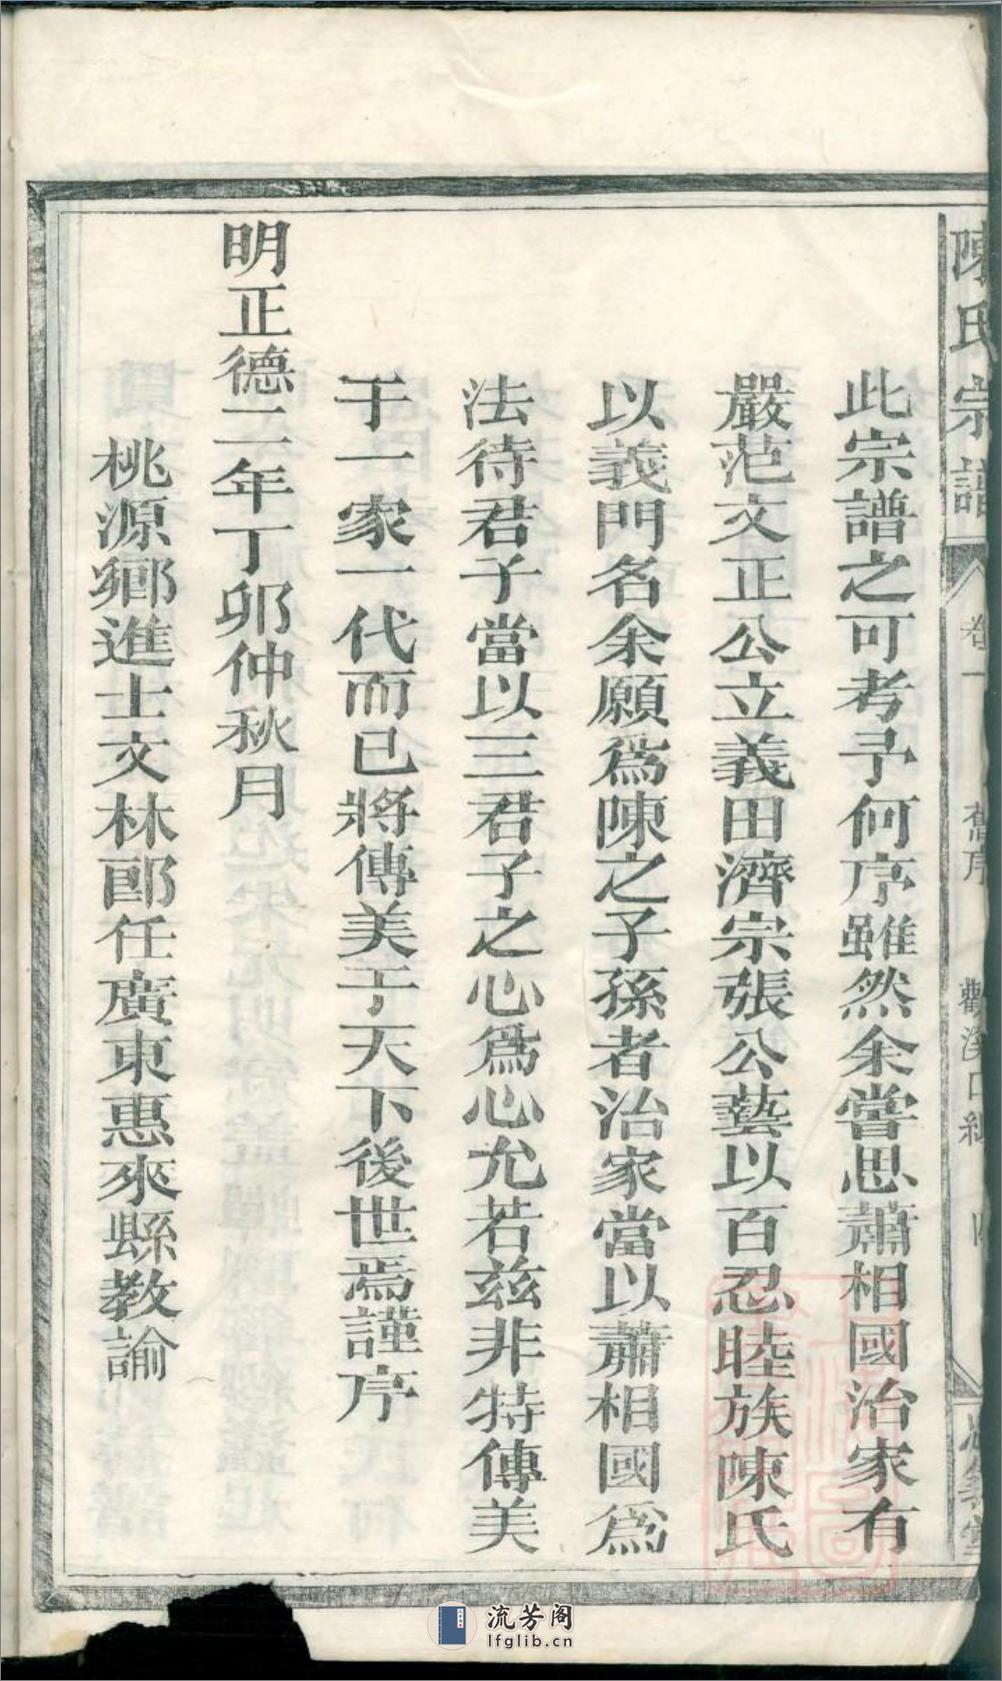 陳氏宗譜 卷一 舊序 觀溪口編
此宗譜之可考予何序雖然余嘗思蕭相國治家有
嚴范文正公立義田濟宗張公藝以百忍睦族陳氏
以義門名余願爲陳之子孫者治家當以蕭相國爲
法待君子當以三君子之心爲心允若兹非特傳美
于一家一代而已將傳美于天下後世焉謹序
明正德二年丁卯仲秋月
桃源鄉進士文林郎任廣東惠來縣教諭
流芳阁
lfglib.cn